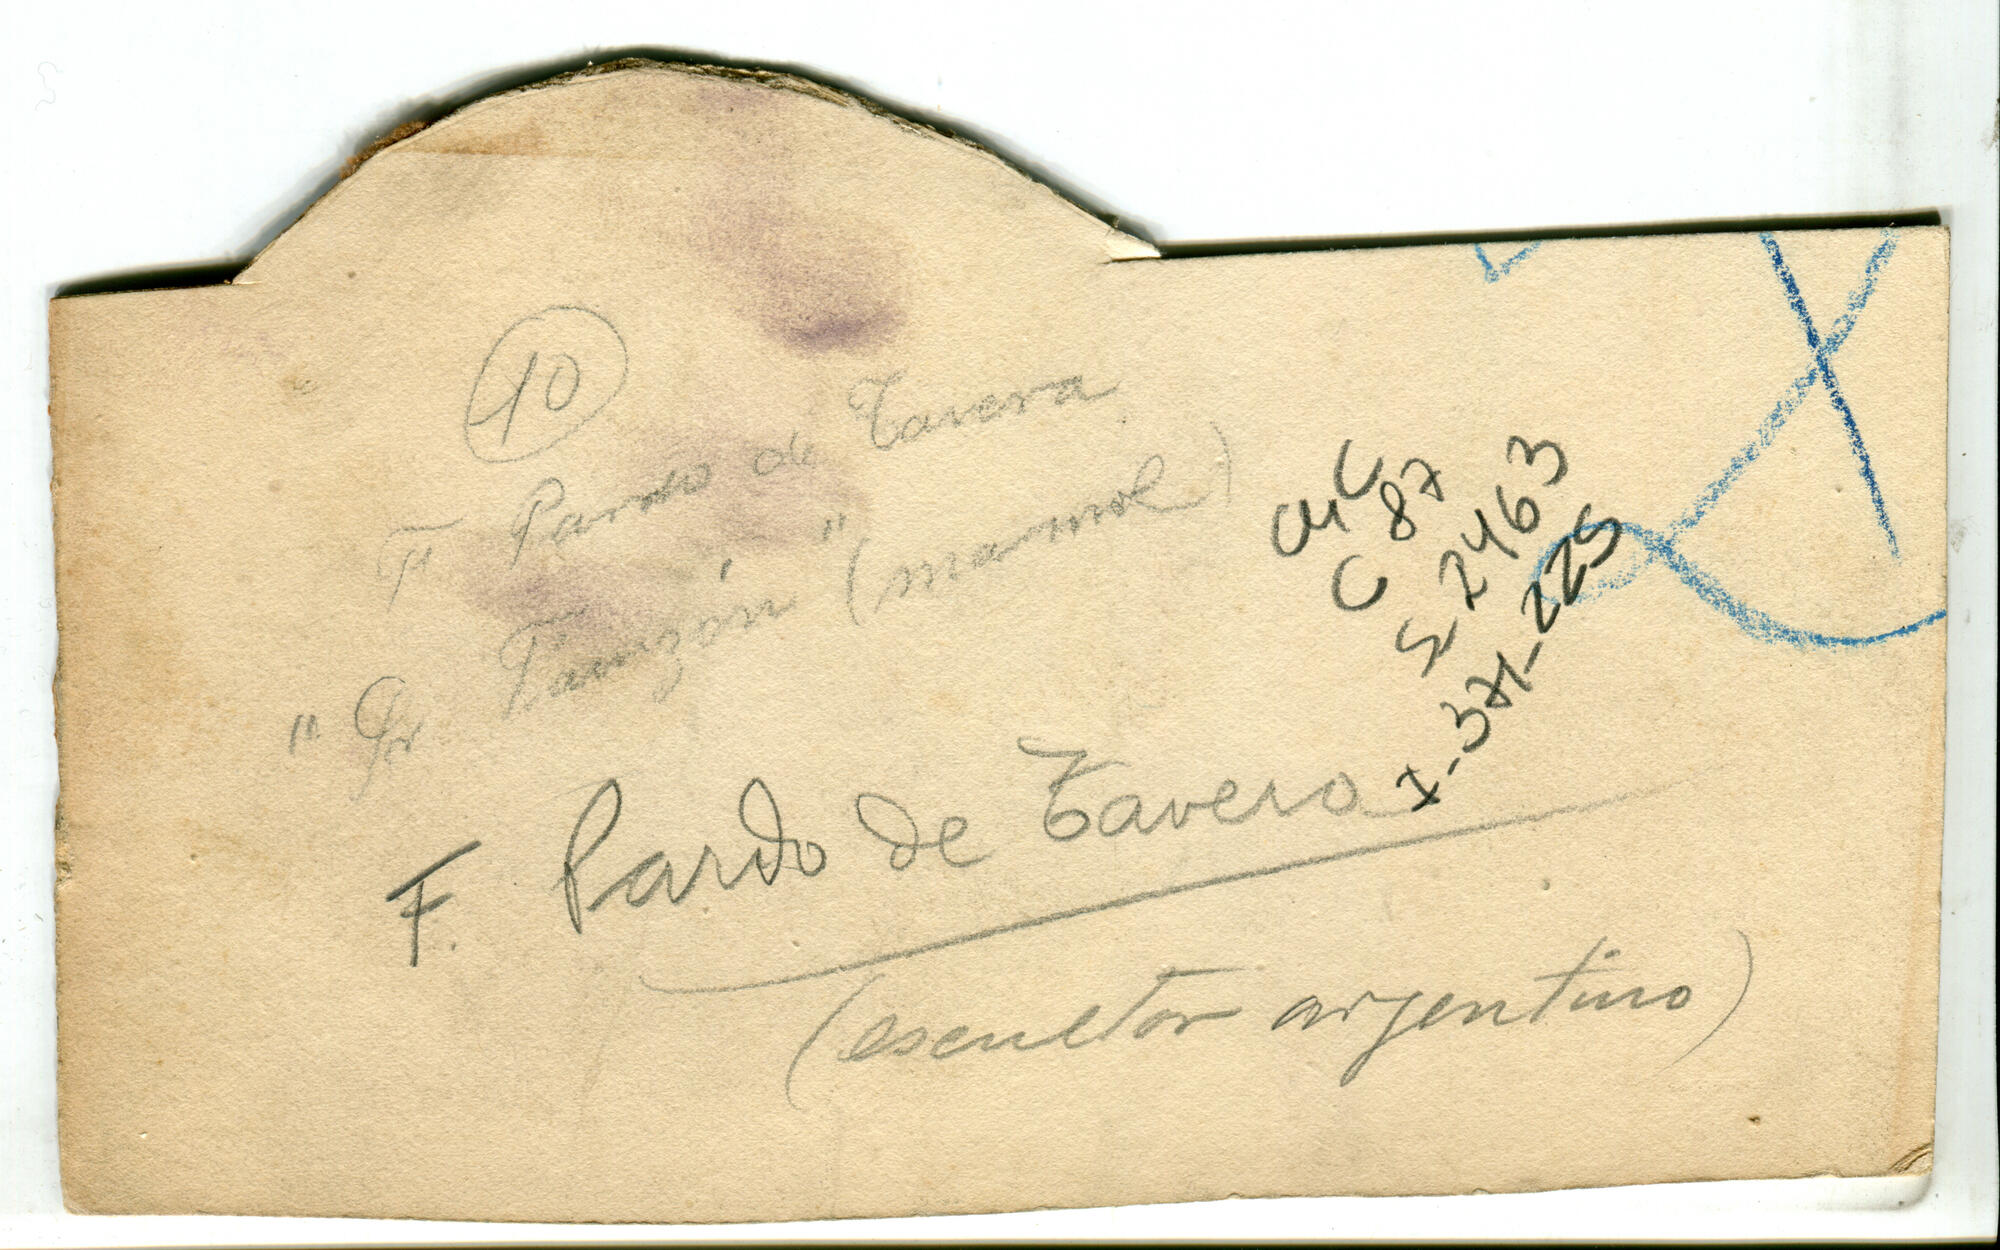 10
F Pardo de Tavera
"Gr Tanzón" (marmol)
CMC
C 87
S 2463
I-371-225
F. Pardo de Tavera
(escultor argentino)